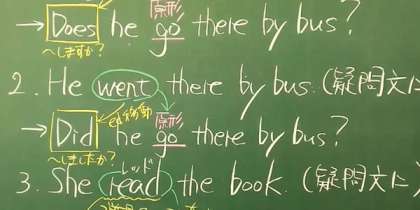 原形
→ Does he go there by bus?
〜しますか?
2. He went there by bus. (疑問文に
ed移動 原形
→ Did he go there by bus?
〜しましたか?
レッド
3. She read the book. (疑問文に